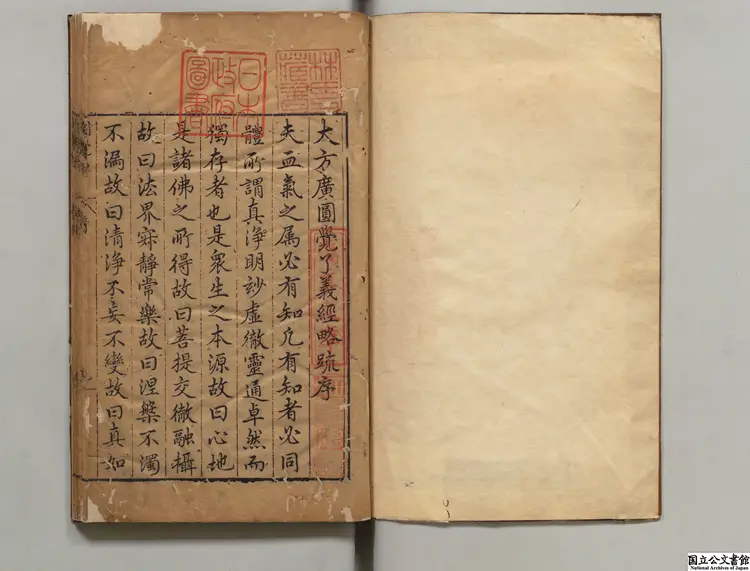 大方廣圓覺了義經略疏序
夫血氣之属必有知凡有知者必同
體所謂真淨明妙虛徹靈通卓然而
獨存者也是衆生之本源故曰心地
是諸佛之所得故曰菩提交徹融攝
故曰法界寂靜常樂故曰涅槃不濁
不漏故曰清淨不妄不變故曰真如
日本
政府
圖書
國立公文書館
National Archives of Japan